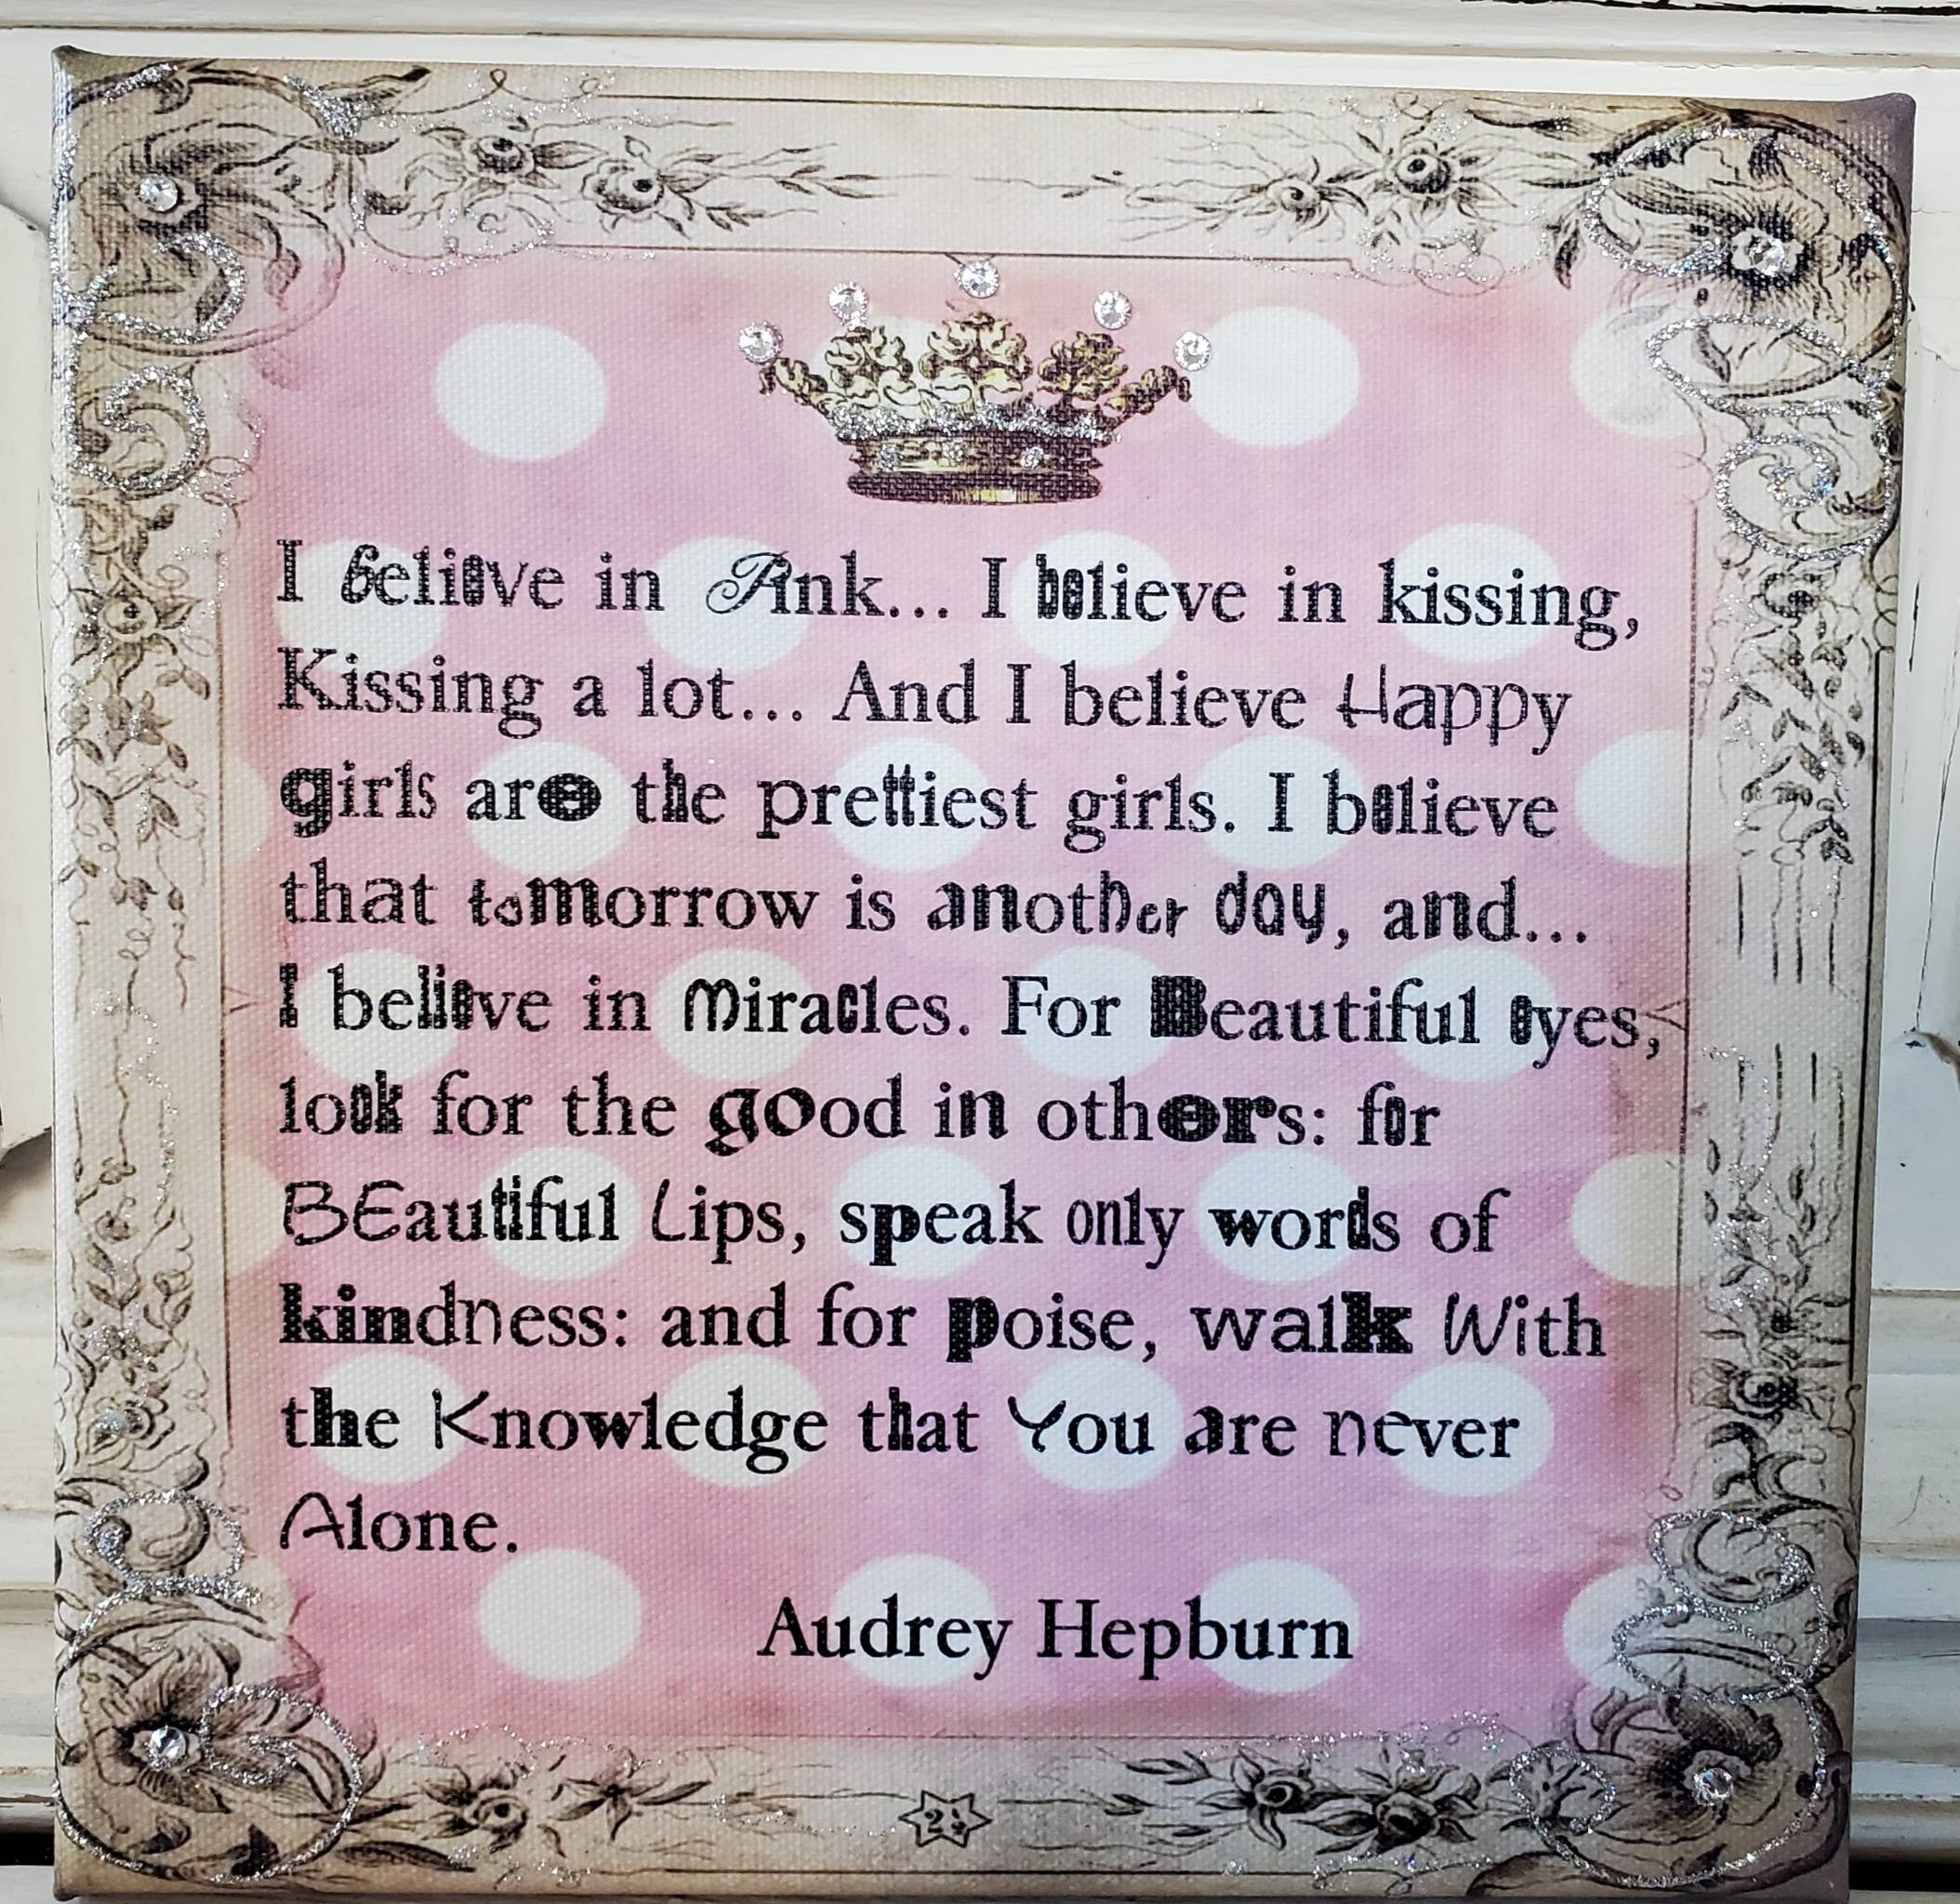 I believe in Pink... I believe in kissing,
Kissing a lot... And I believe Happy
girls are the prettiest girls. I believe
that tomorrow is another day, and...
I believe in Miracles. For Beautiful eyes,
look for the good in others: for
BEautiful Lips, speak only words of
kindness: and for poise, walk With
the Knowledge that You are never
Alone.
Audrey Hepburn